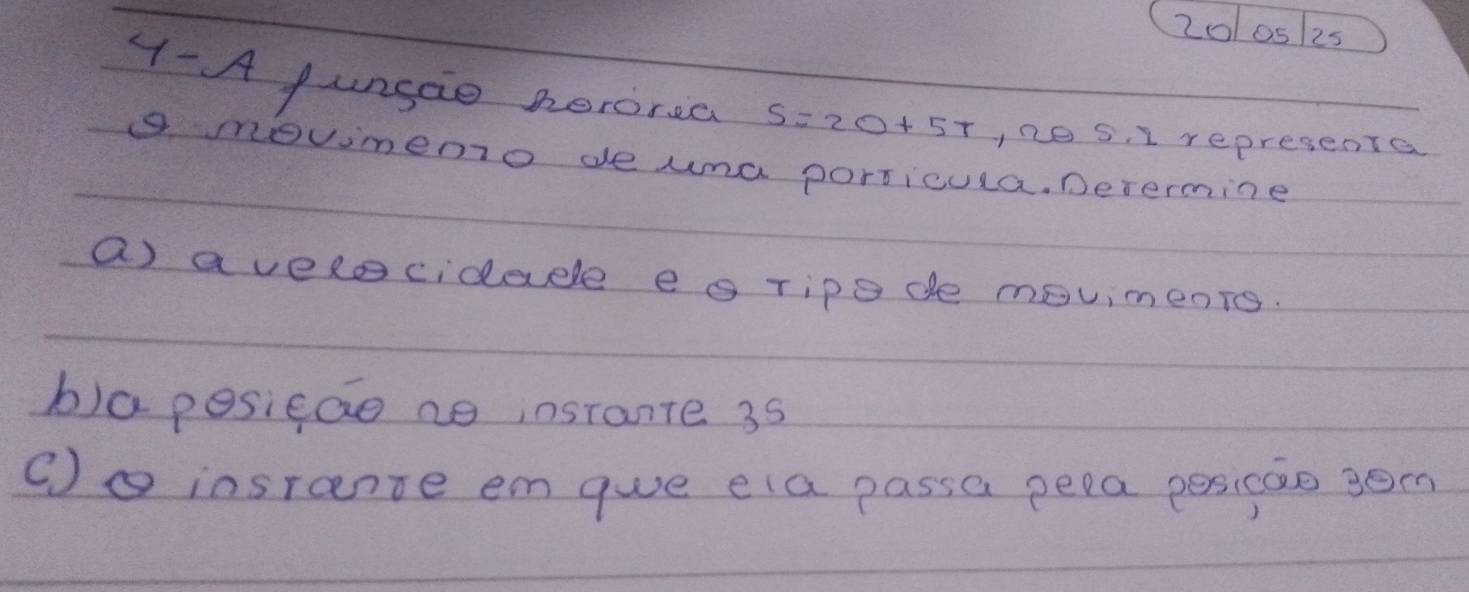 20/05/25
4-A função horária S=20+5T, no S.I representa
o movimento de uma partícula. Determine
a) a velocidade e o tipo de movimento.
b) a posição no instante 3s
c) o instante em que ela passa pela posição 30m